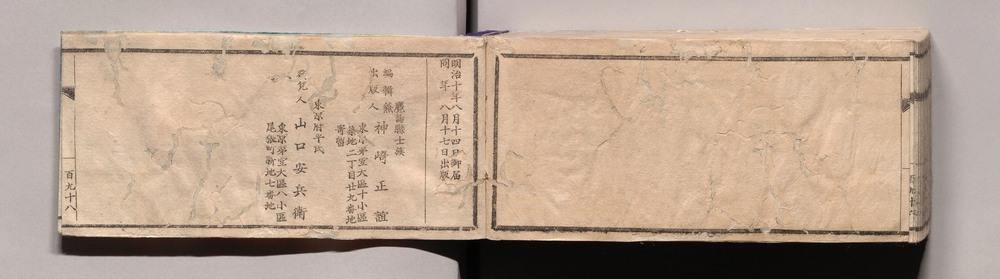 明治十年八月十四日御届
同年八月十七日出版
鹿島縣士族
編輯兼
出版人
神崎正誼
東京第壹大區十小區
築地二丁目廿九番地
寄留
東京府平民
發兌人
山口安兵衛
東京第壹大區八小區
尾張町新地七番地
百九十八
百九十八